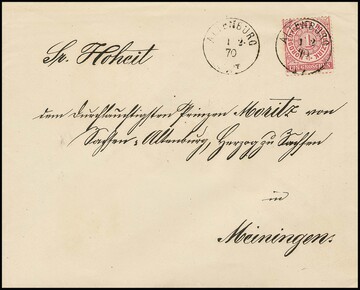 Sr. Hoheit
ALTENBURG
1 2
70
ALTENBURG
1 2
dem Durchlauchtigsten Prinzen Moritz von
Sachsen=Altenburg, Herzog zu Sachsen
in
Meiningen.